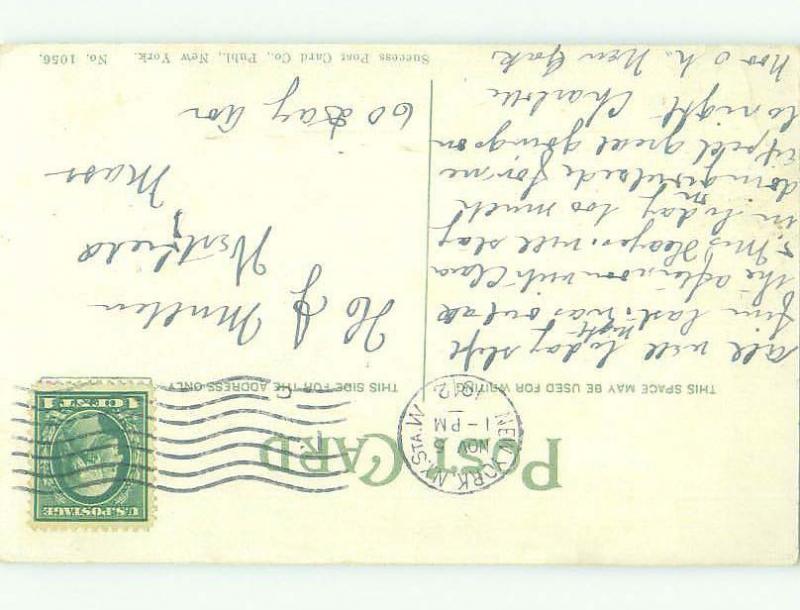 POST CARD
NEW YORK, N.Y. STA. W
NOV 5
1-PM
1912
U.S. POSTAGE
1 CENT 1
C
THIS SPACE MAY BE USED FOR WRITING
THIS SIDE FOR THE ADDRESS ONLY
All well today slept
fine last night was out all
the afternoon with Clara
& Mrs will stay
in today too much
doing outside for me
great going on
tonight Charlotte
Nov 5 New York
H J Mullen
Westfield
Mass
60 Day Ave
Success Post Card Co., Publ., New York. No. 1056.